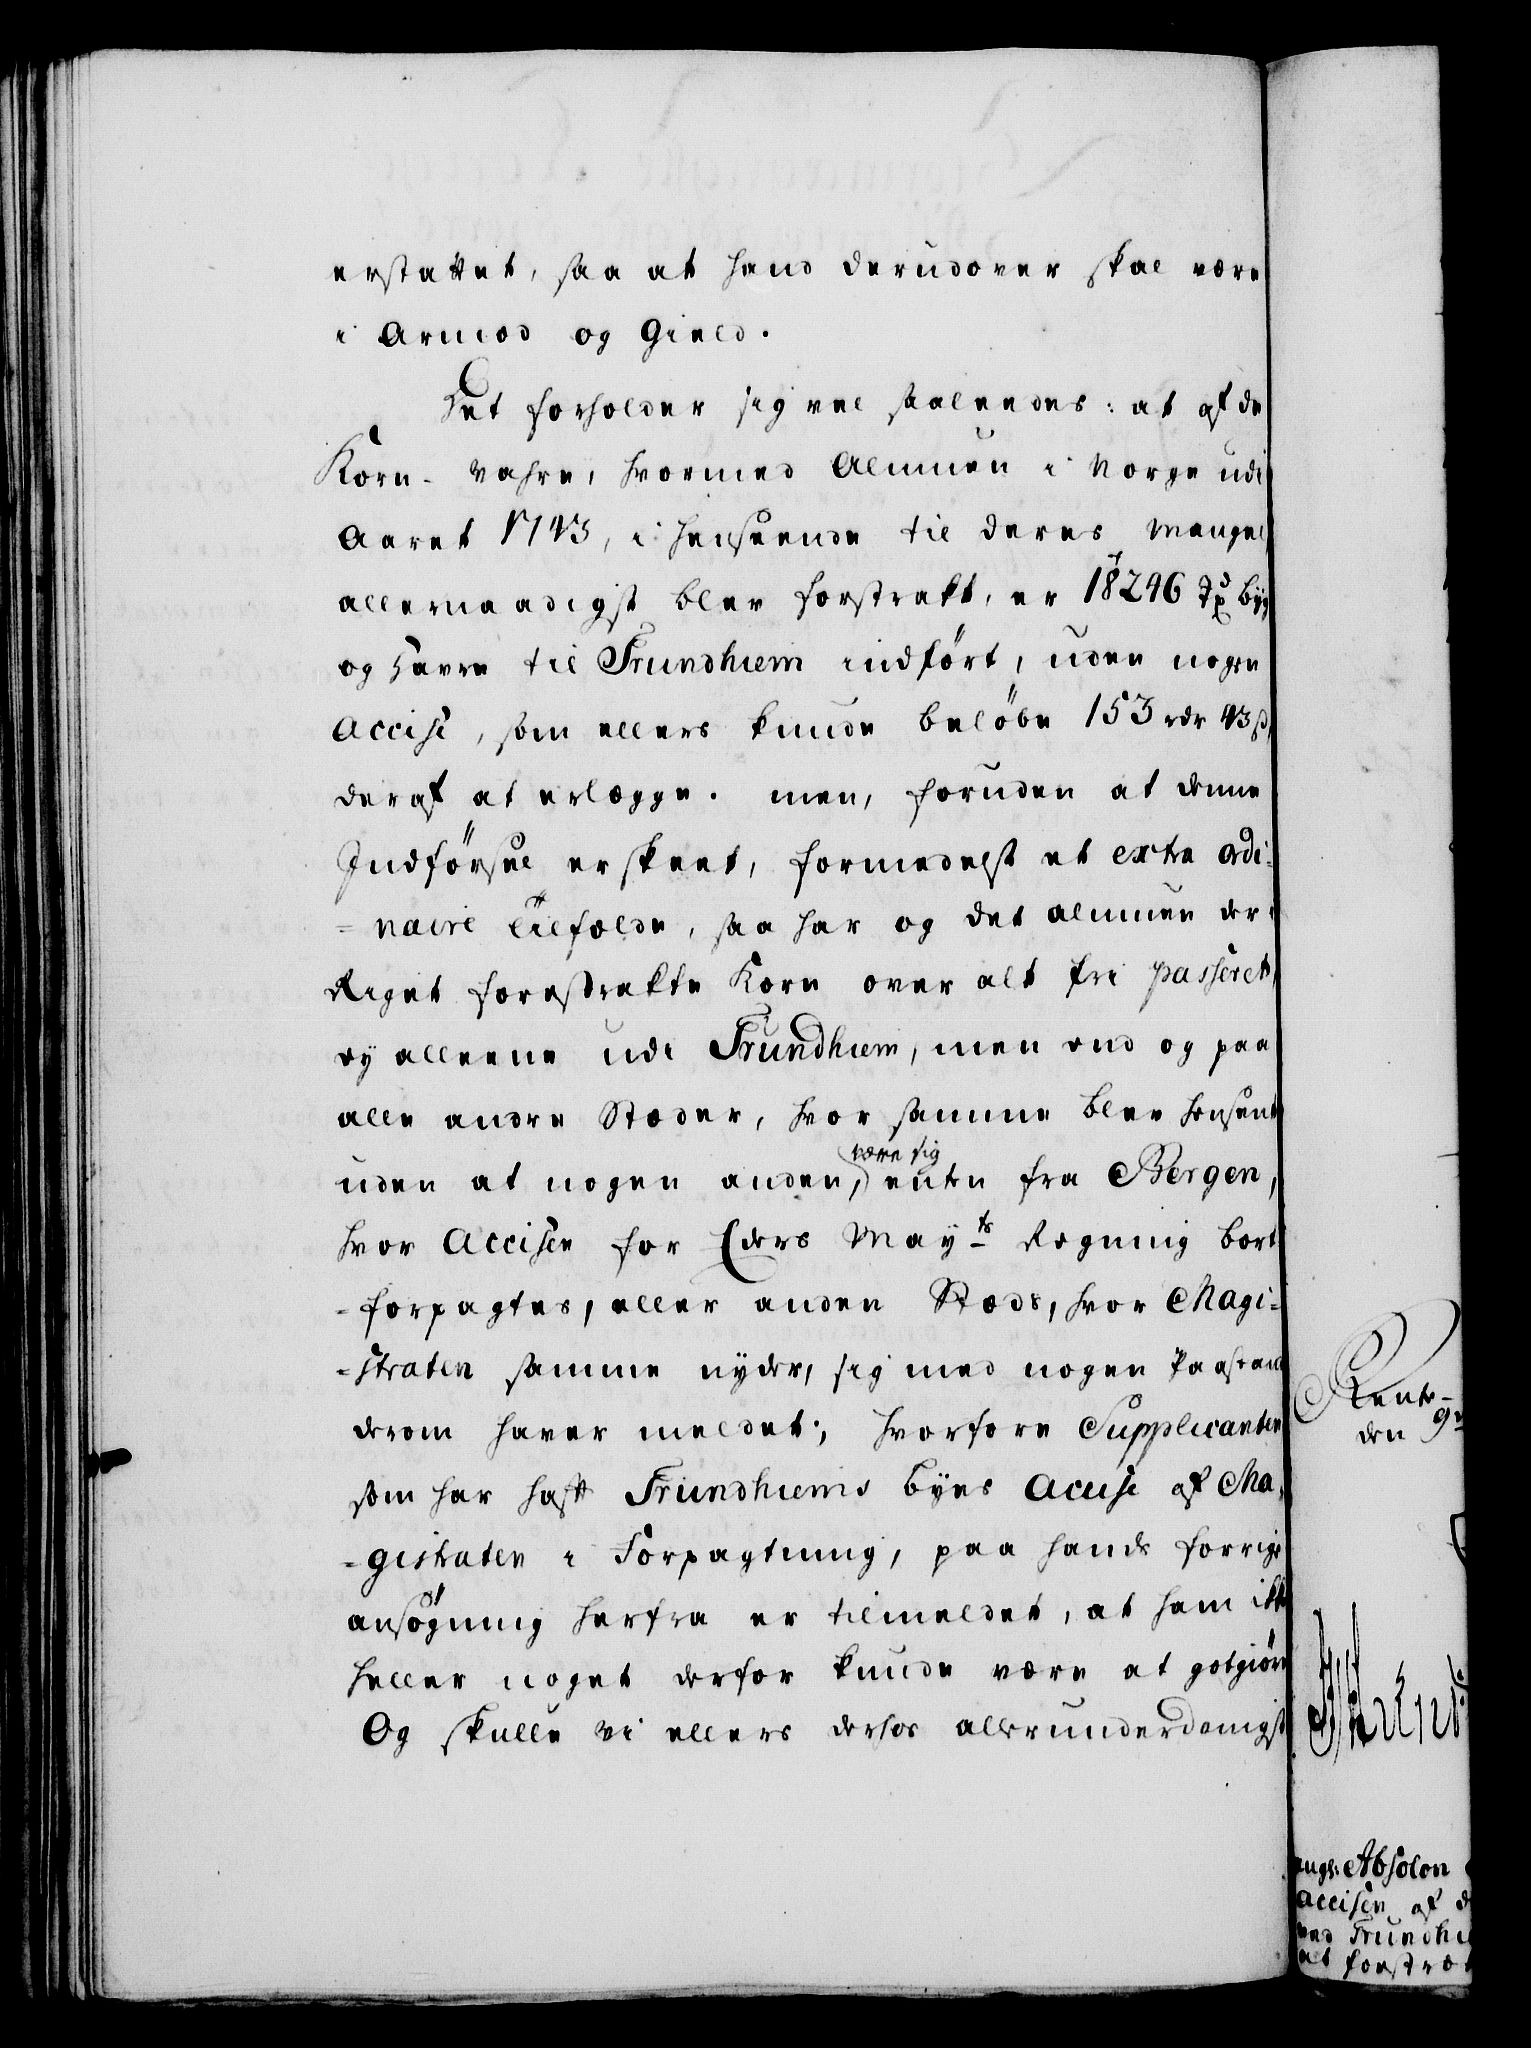 erstattet, saa at hand derudover skal være
i Armod og Gield.
Det forholder sig vel saaleedes: at af de
Korn-Vahre, hvormed Almuen i Norge udi
Aaret 1743, i henseende til deres Mangel
allernaadigst blev forstrakt, er 18246 Tdr Byg
og Havre til Trundhiem indført, uden nogen
Accise, som ellers kunde beløbe 153 rdr 43 ß,
deraf at erlægge. men, foruden at denne
Indførsel er skeet, formedelst et extra ordi-
=naire tilfælde, saa har og det almuen der i
Riget forestrakte Korn over alt fri passeret,
ey alleene udi Trundhiem, men end og paa
alle andre Stæder, hvor samme blev hensent
uden at nogen anden, være sig enten fra Bergen,
hvor Accisen for Eders Mayts Regning bort
-forpagtes, eller anden Stæds, hvor Magi-
-straten samme nyder, sig med nogen Paastand
derom haver meldet; hvorfore Supplicanten
som har haft Trundhiems Byes Accise af Ma-
-gistraten i Forpagtning, paa hands forrige
ansøgning herfra er tilmeldet, at ham ikke
heller noget derfor kunde være at gotgiøre
Og skulle Vi ellers derhos allerunderdanigst
Rente-
den 9
angl: Absolon
Accisen af d
ved Trundhi
at forstræ